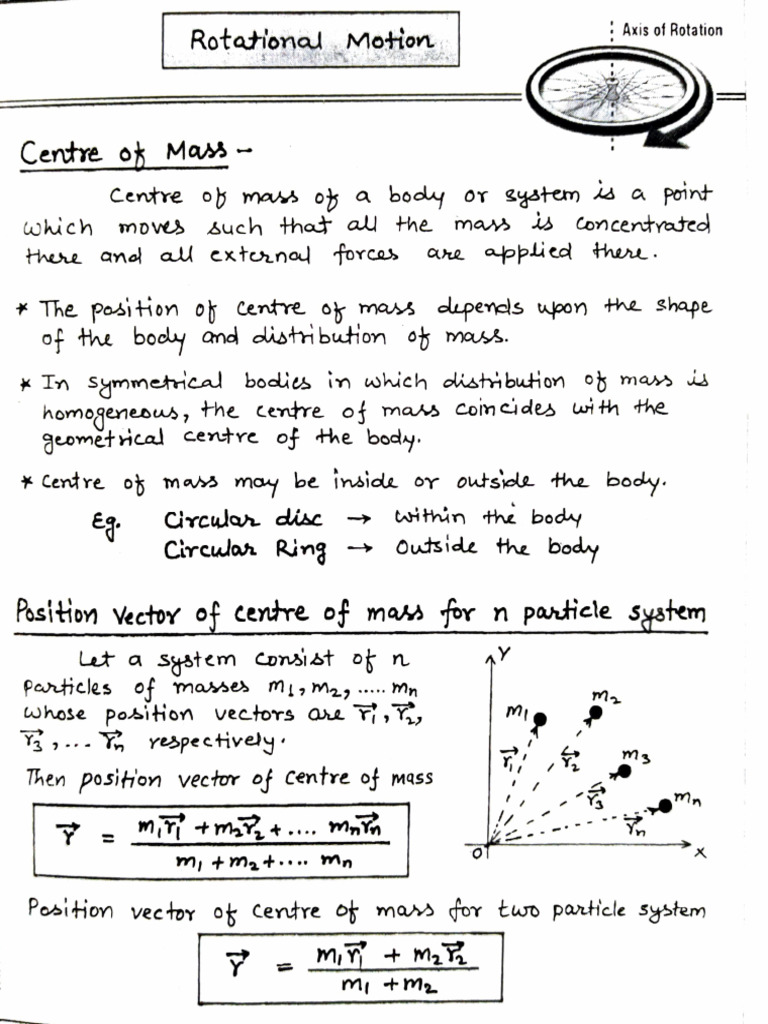 Rotational Motion
Axis of Rotation
Centre of Mass -
Centre of mass of a body or system is a point
which moves such that all the mass is concentrated
there and all external forces are applied there.
* The position of centre of mass depends upon the shape
of the body and distribution of mass.
* In symmetrical bodies in which distribution of mass is
homogeneous, the centre of mass coincides with the
geometrical centre of the body.
* Centre of mass may be inside or outside the body.
Eg. Circular disc → within the body
Circular Ring → Outside the body
Position vector of centre of mass for n particle system
Let a system consist of n
particles of masses m₁, m₂, ..... mₙ
whose position vectors are r⃗₁, r⃗₂,
r⃗₃, ... r⃗ₙ respectively.
Then position vector of centre of mass
r⃗ = (m₁r⃗₁ + m₂r⃗₂ + .... mₙr⃗ₙ) / (m₁ + m₂ + .... mₙ)
Y
m₁
m₂
r⃗₁
r⃗₂
m₃
r⃗₃
mₙ
r⃗ₙ
O
X
Position vector of centre of mass for two particle system
r⃗ = (m₁r⃗₁ + m₂r⃗₂) / (m₁ + m₂)